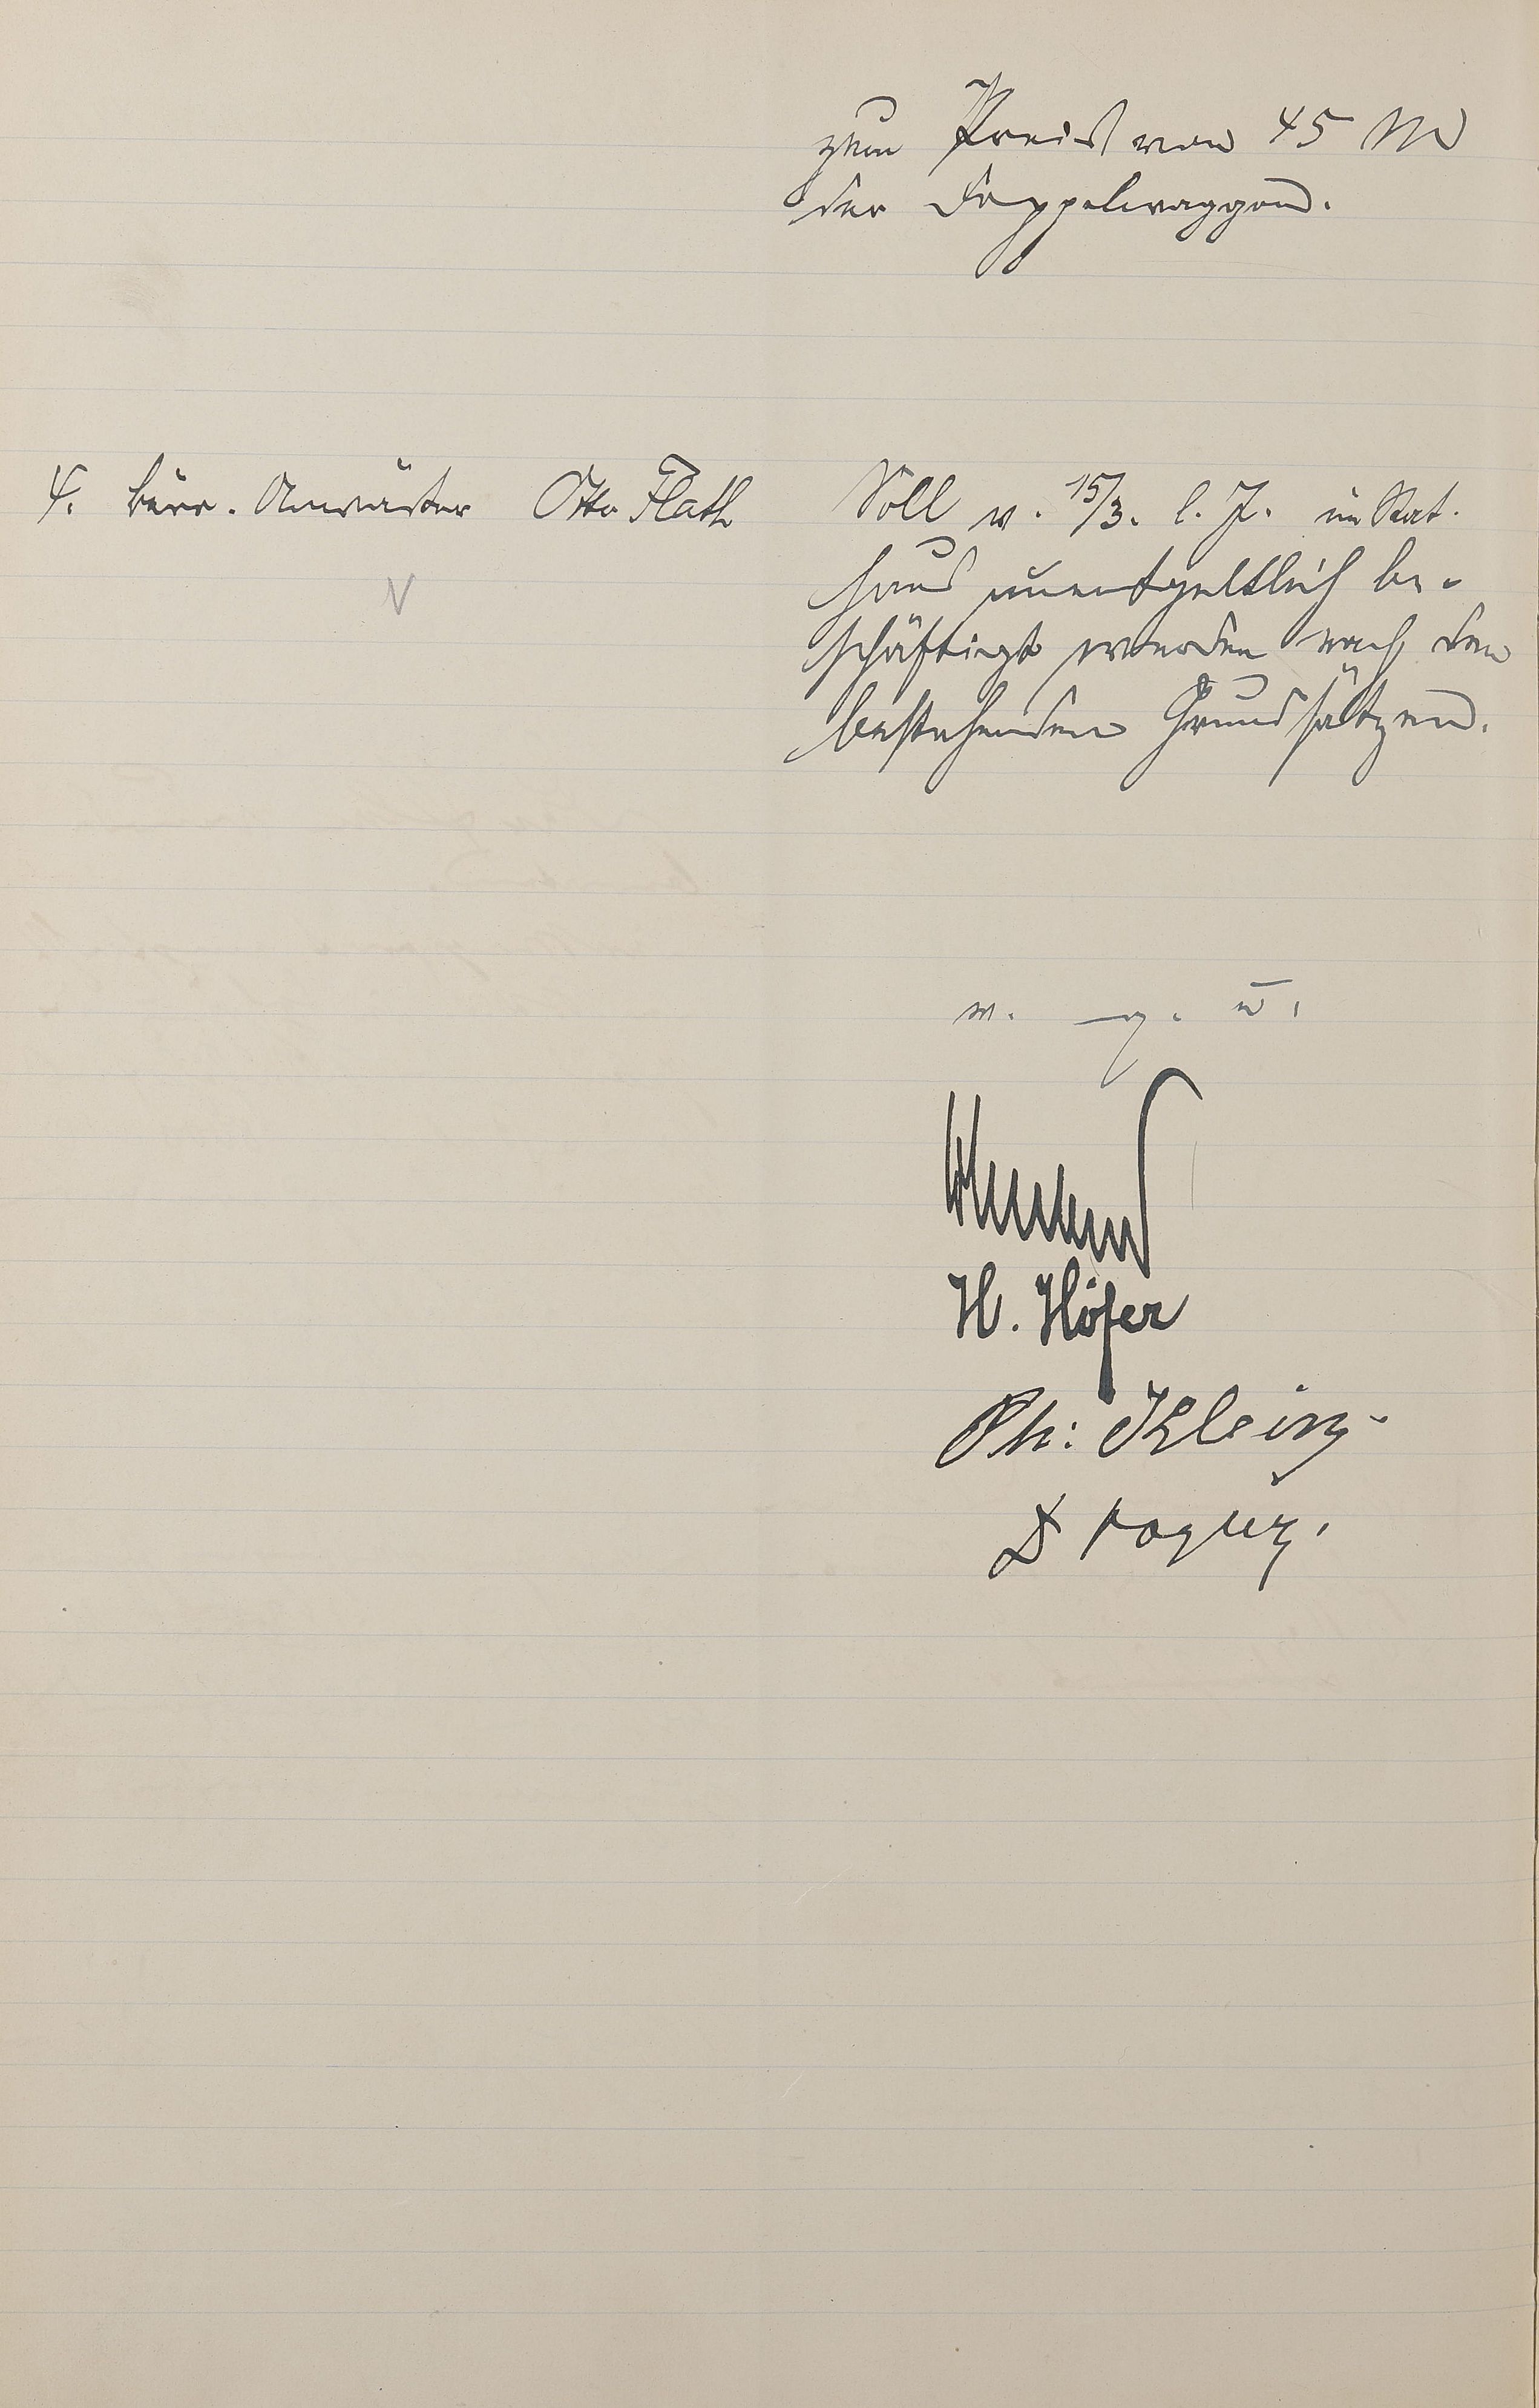 zum Preis von 45 M
der Doppelwaggon.
4. Büro. Anwärter Otto Flath
Soll v. 15/3. l. J. im Rat-
haus unentgeltlich be-
schäftigt werden nach den
bestehenden Grundsätzen.
v. g. u.
H. Höfer
Ph: Klein